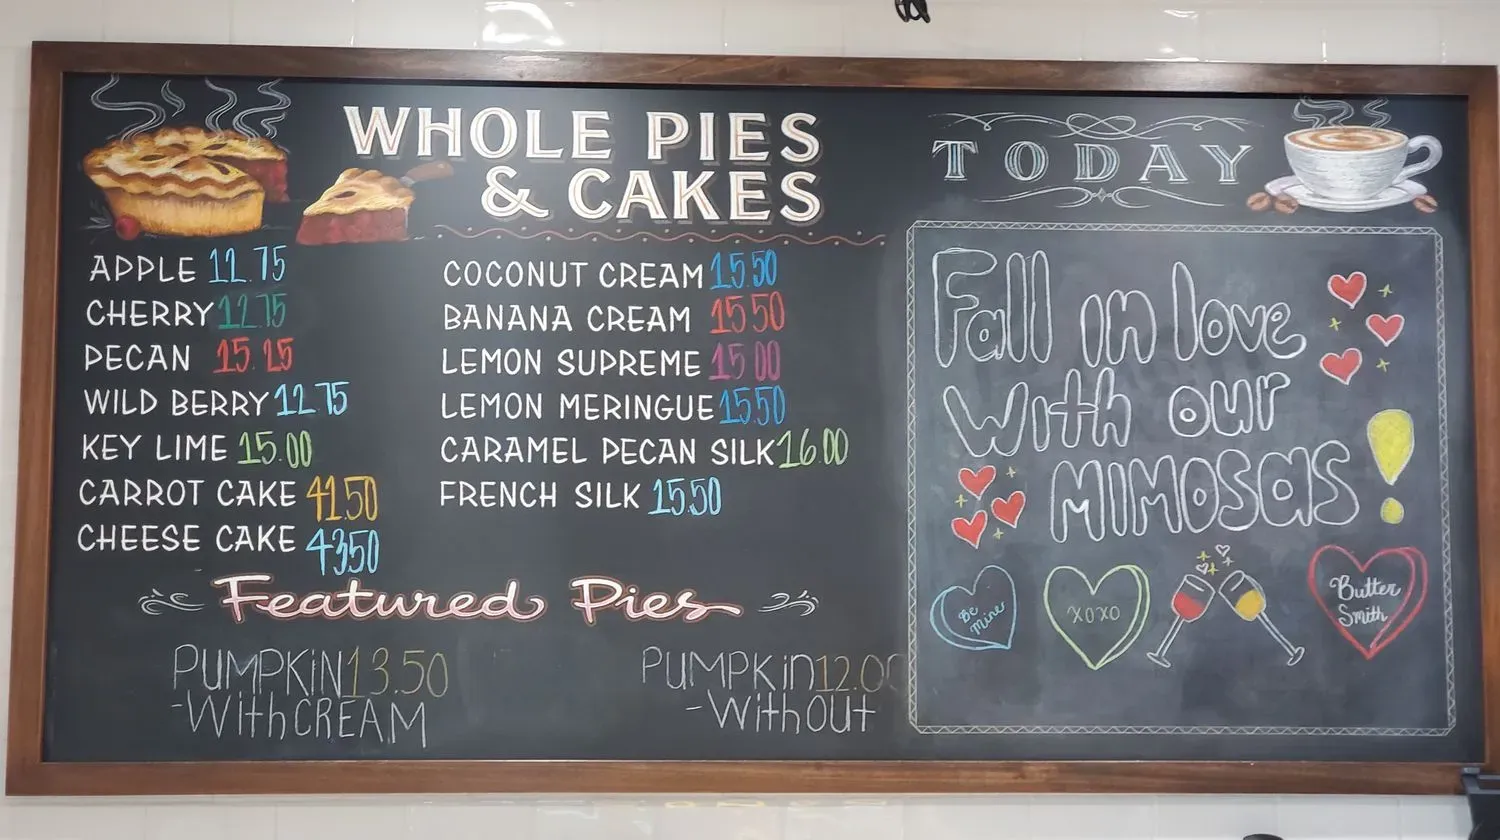 WHOLE PIES
& CAKES
APPLE 12.75
CHERRY 12.75
PECAN 15.25
WILD BERRY 12.75
KEY LIME 15.00
CARROT CAKE 41.50
CHEESE CAKE 43.50
COCONUT CREAM 15.50
BANANA CREAM 15.50
LEMON SUPREME 15.00
LEMON MERINGUE 15.50
CARAMEL PECAN SILK 16.00
FRENCH SILK 15.50
Featured Pies
PUMPKiN 13.50
-WithCREAM
PUMPKin 12.00
-WithOut
TODAY
Fall in love
with our
MIMOSAS!
Be
Mine
XOXO
Butter
Smith